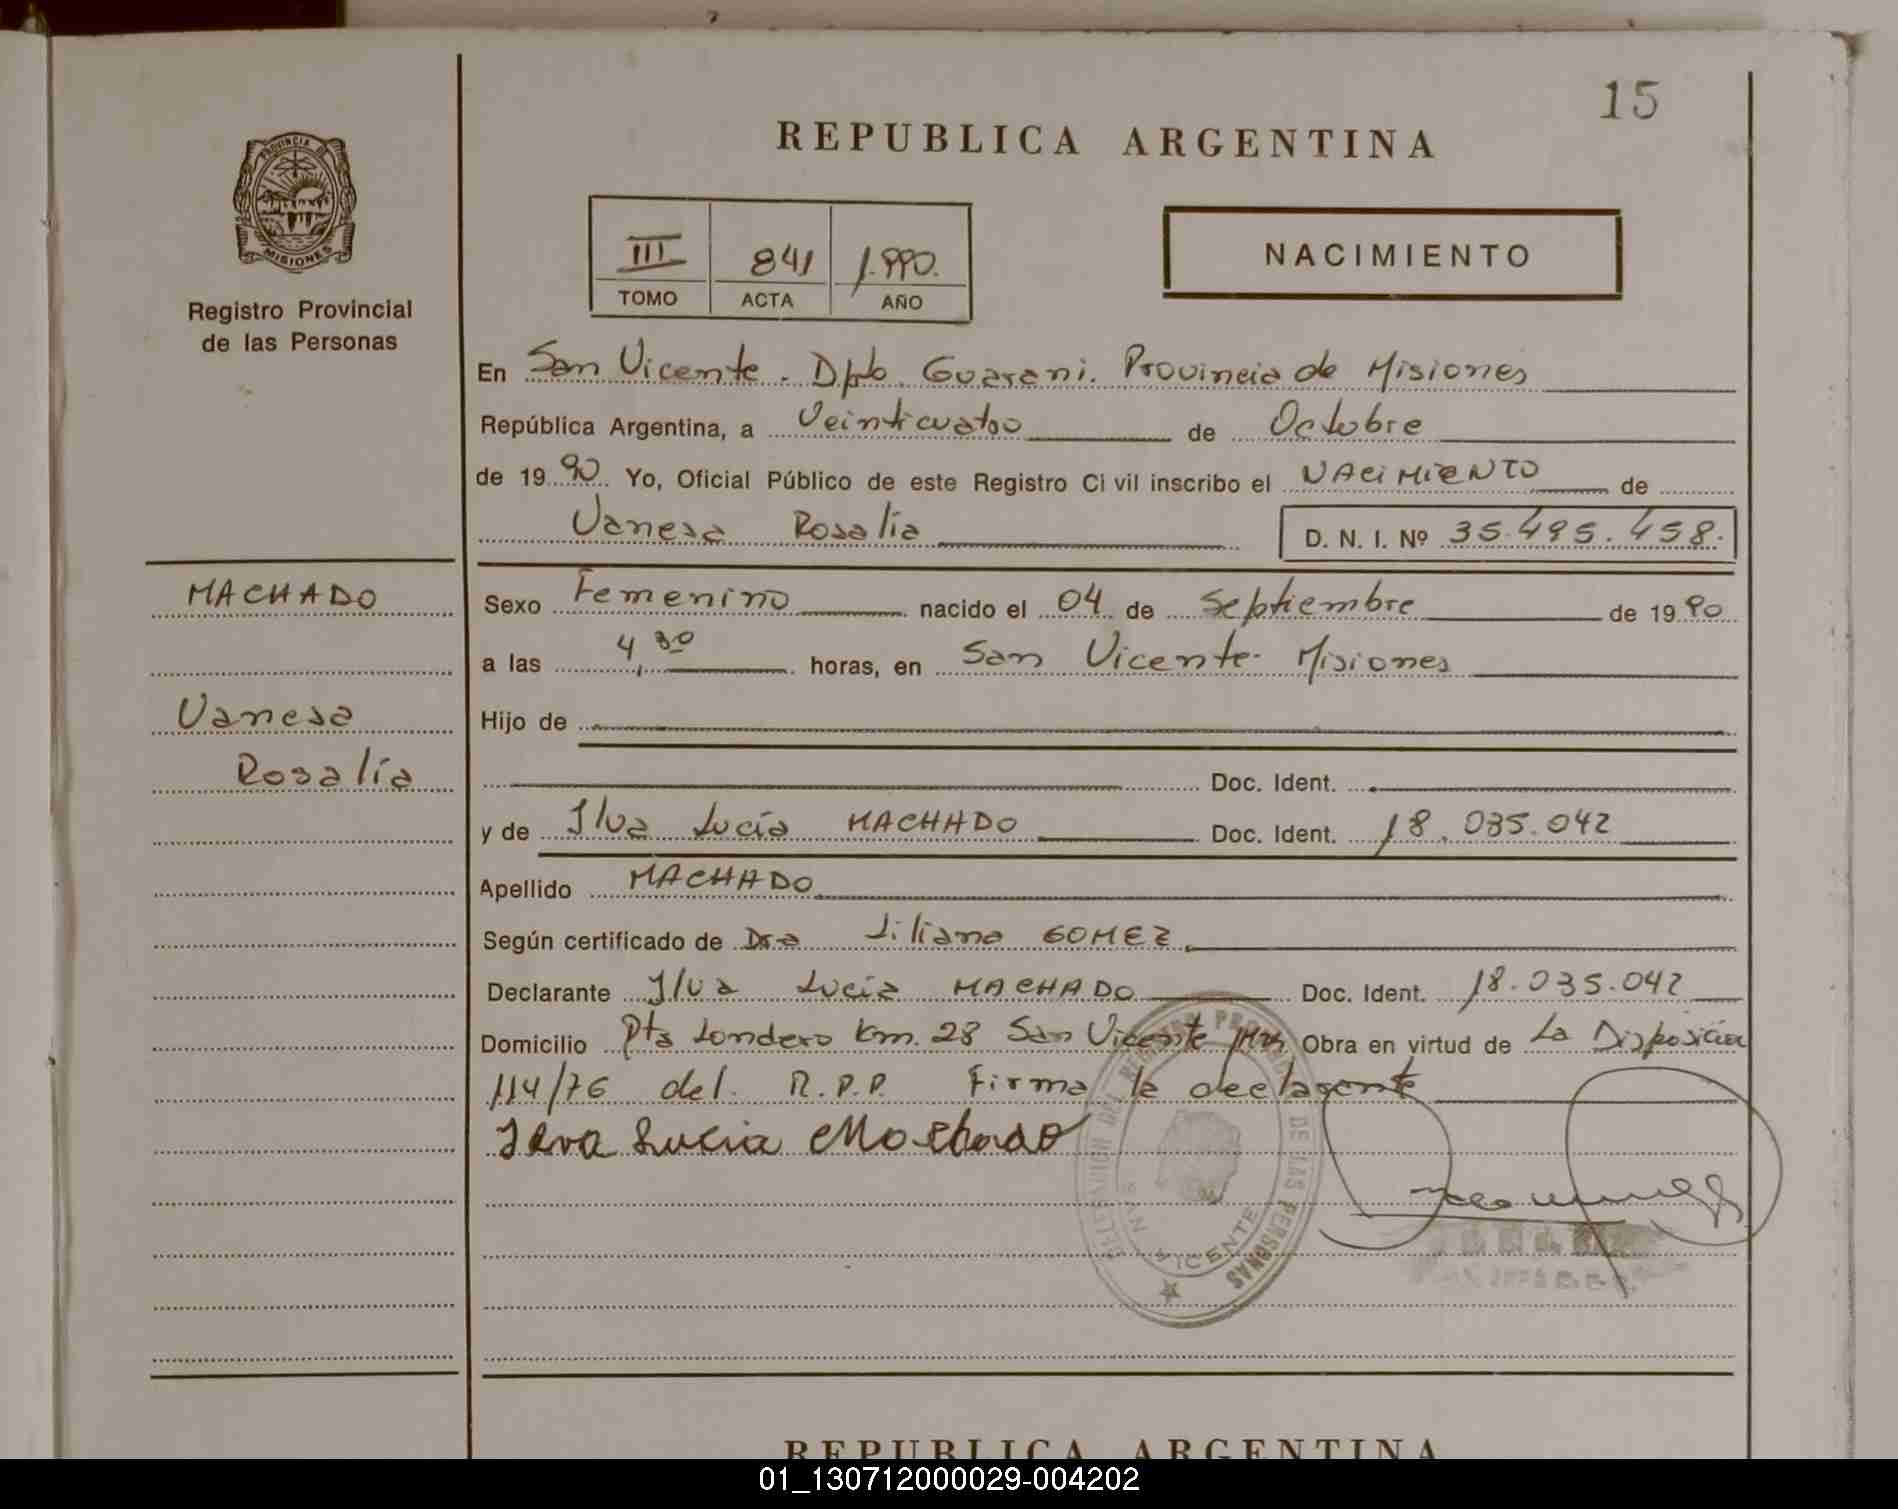 15
REPUBLICA ARGENTINA
PROVINCIA DE
MISIONES
Registro Provincial
de las Personas
III 841 1.990.
TOMO ACTA AÑO
NACIMIENTO
En San Vicente. Dpto. Guarani. Provincia de Misiones
República Argentina, a Veinticuatro de Octubre
de 1990. Yo, Oficial Público de este Registro Civil inscribo el NACIMIENTO de
Vanesa Rosalía D. N. I. Nº 35.495.458.
MACHADO
Vanesa
Rosalía
Sexo Femenino nacido el 04 de Septiembre de 1990
a las 4,30 horas, en San Vicente. Misiones
Hijo de
Doc. Ident.
y de Ilva Lucía MACHADO Doc. Ident. 18.035.042
Apellido MACHADO
Según certificado de Dra Liliana GOMEZ
Declarante Ilva Lucía MACHADO Doc. Ident. 18.035.042
Domicilio Pta Londero Km. 28 San Vicente Mns Obra en virtud de La Disposición
114/76 del R.P.P. Firma la declarante
Ilva Lucia Machado
DELEGACION DEL REGISTRO PROVINCIAL DE LAS PERSONAS
SAN VICENTE
REPUBLICA ARGENTINA
01_130712000029-004202